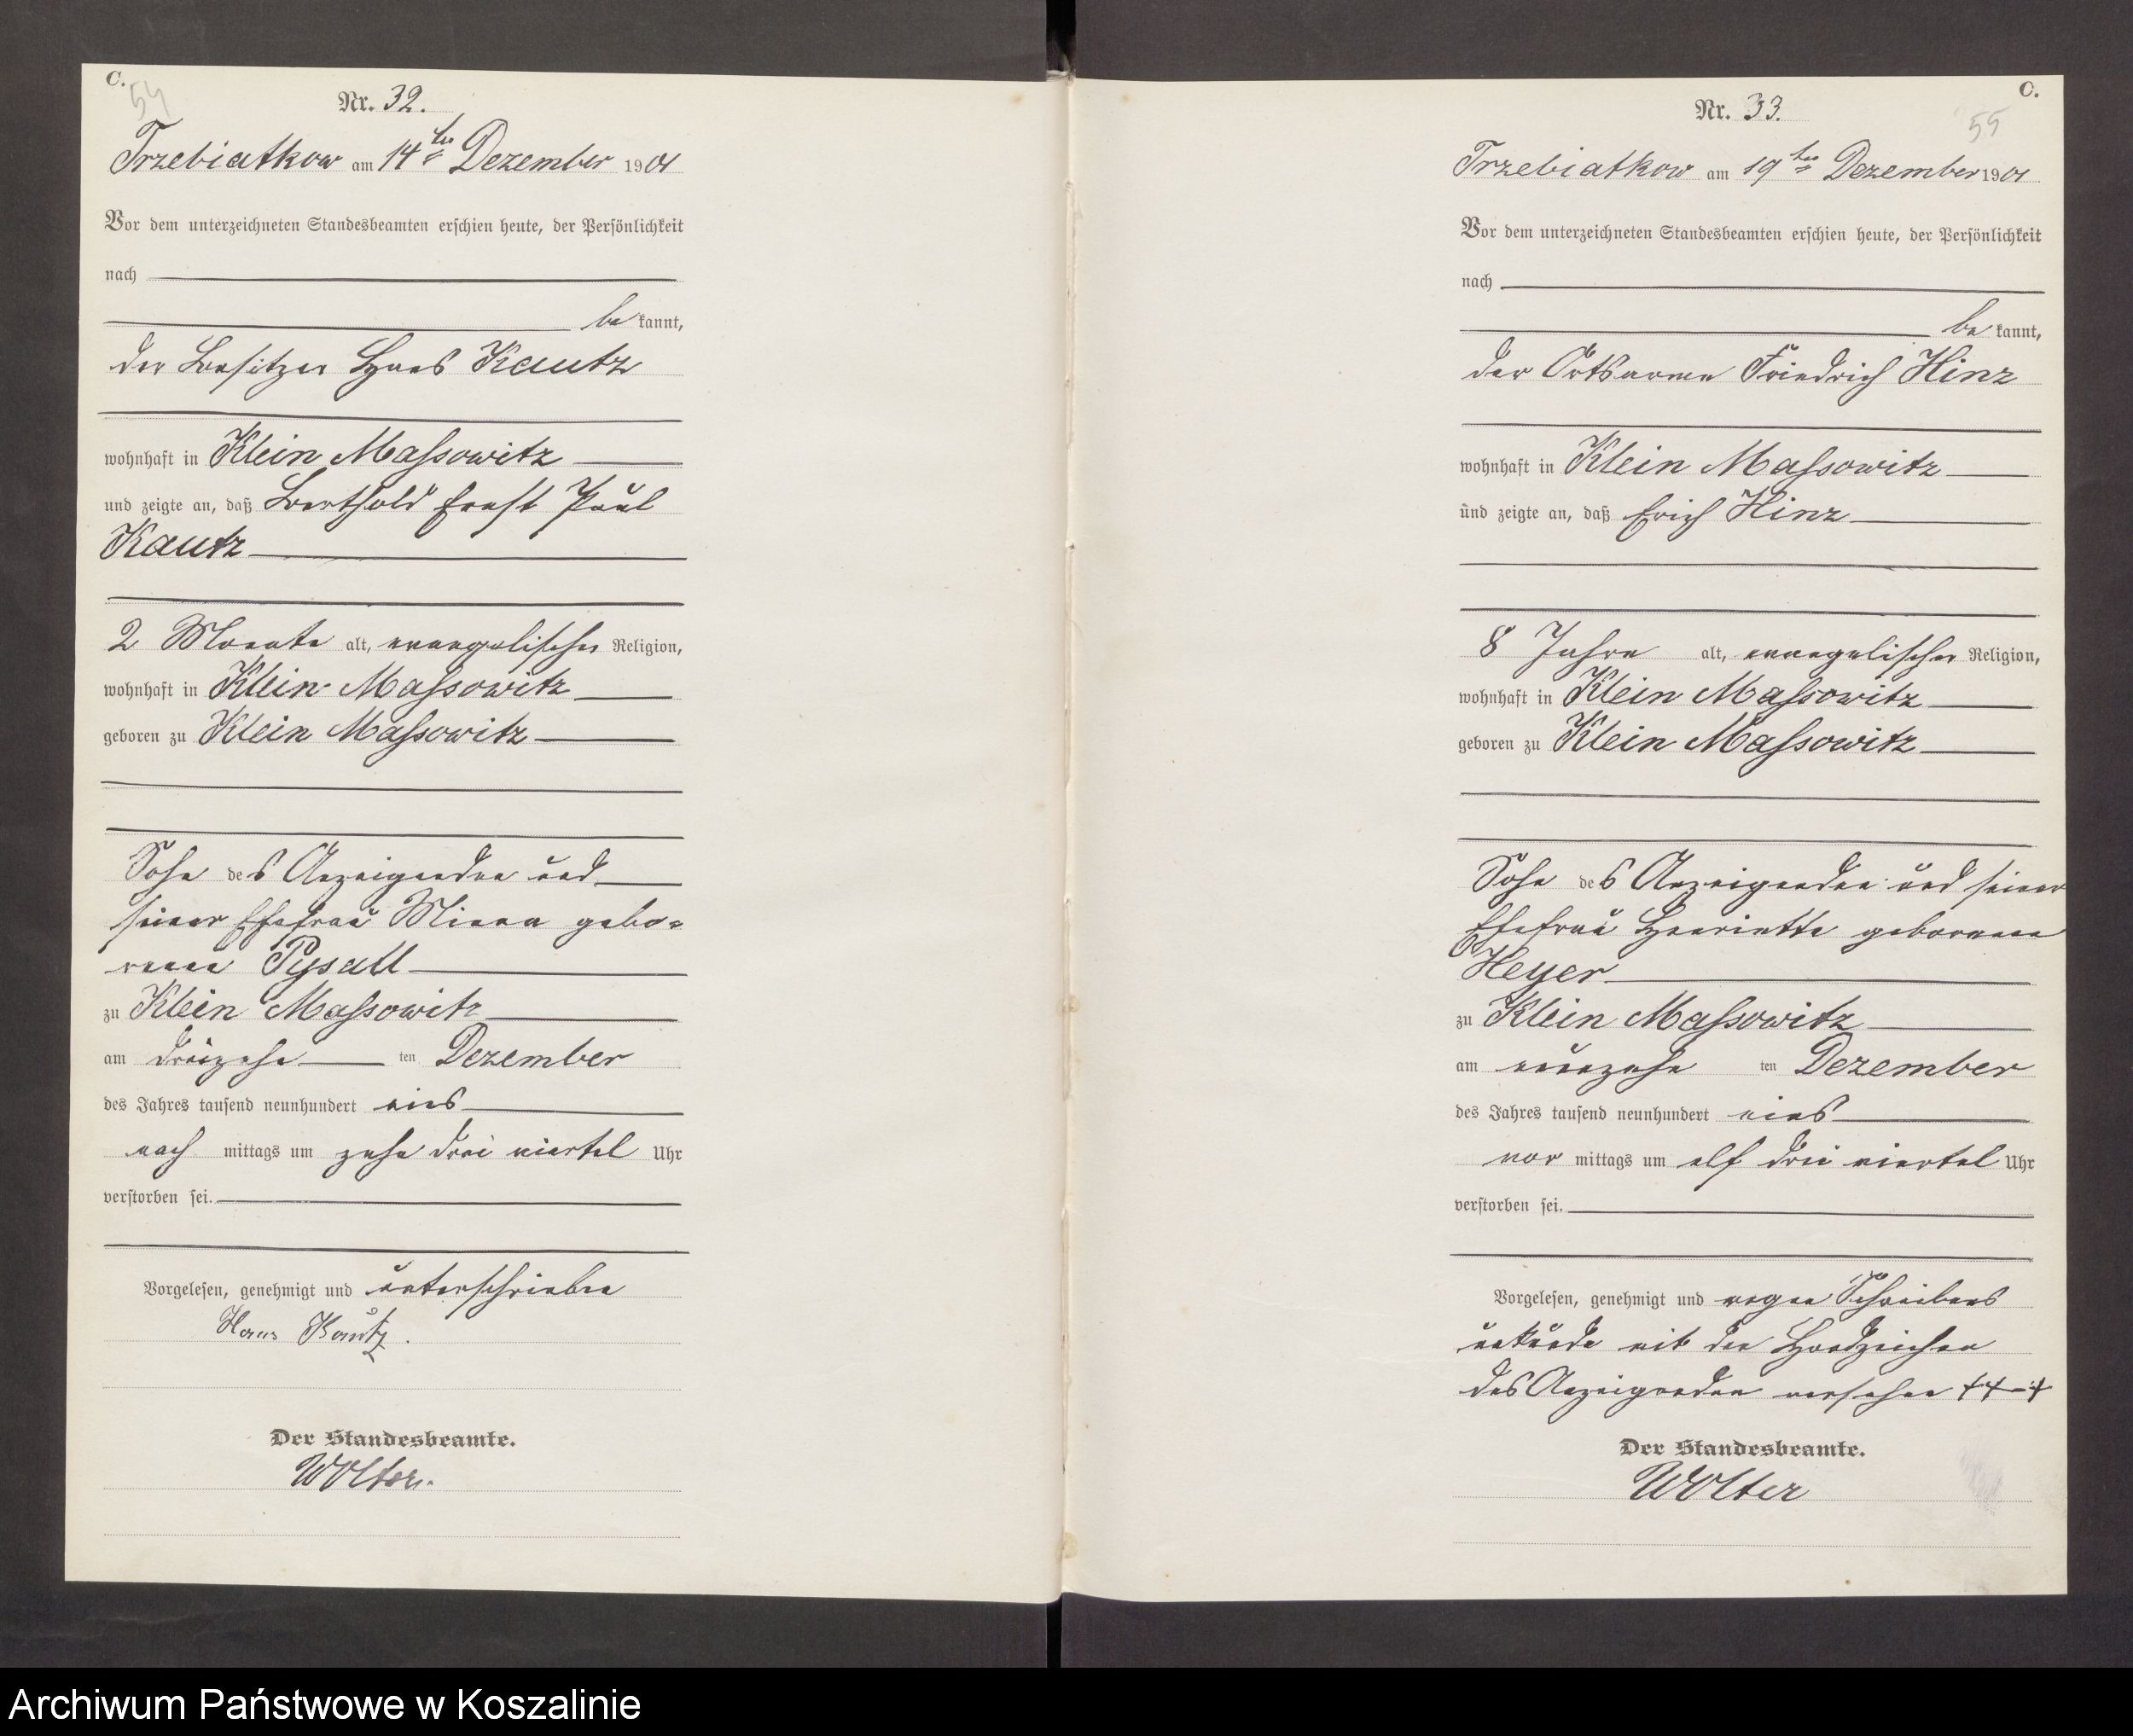 C.
54
Nr. 32.
Trzebiatkow am 14ten Dezember 1901
Vor dem unterzeichneten Standesbeamten erschien heute, der Persönlichkeit
nach
be kannt,
der Besitzer Hans Kautz
wohnhaft in Klein Massowitz
und zeigte an, daß Berthold Ernst Paul
Kautz
2 Monate alt, evangelischer Religion,
wohnhaft in Klein Massowitz
geboren zu Klein Massowitz
Sohn des Anzeigenden und
seiner Ehefrau Minna gebo=
renen Pysall
zu Klein Massowitz
am dreizehn ten Dezember
des Jahres tausend neunhundert eins
nach mittags um zehn drei viertel Uhr
verstorben sei.
Vorgelesen, genehmigt und unterschrieben
Hans Kautz.
Der Standesbeamte.
Wolter.
C.
55
Nr. 33.
Trzebiatkow am 19ten Dezember 1901
Vor dem unterzeichneten Standesbeamten erschien heute, der Persönlichkeit
nach
be kannt,
der Ortsarme Friedrich Hinz
wohnhaft in Klein Massowitz
und zeigte an, daß Erich Hinz
8 Jahre alt, evangelischer Religion,
wohnhaft in Klein Massowitz
geboren zu Klein Massowitz
Sohn des Anzeigenden und seiner
Ehefrau Henriette geborenen
Heyer
zu Klein Massowitz
am neunzehn ten Dezember
des Jahres tausend neunhundert eins
vor mittags um elf drei viertel Uhr
verstorben sei.
Vorgelesen, genehmigt und wegen Schreibens
unkunde mit den Handzeichen
des Anzeigenden versehen ++-+
Der Standesbeamte.
Wolter
Archiwum Państwowe w Koszalinie